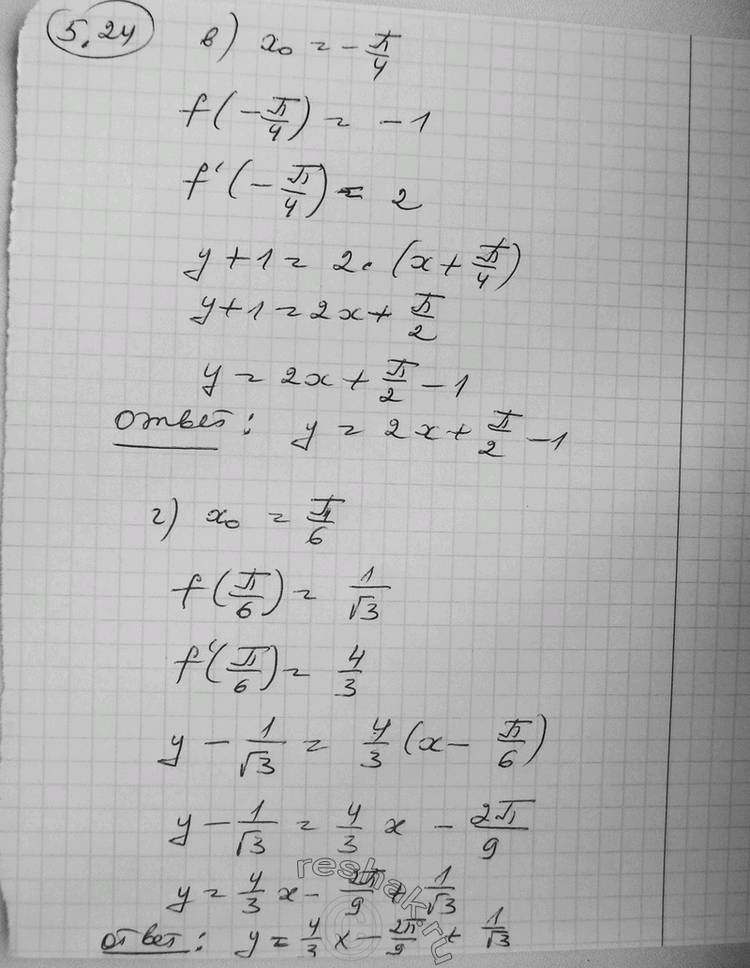 5.24 в) x₀ = -π/4
f(-π/4) = -1
f'(-π/4) = 2
y + 1 = 2·(x + π/4)
y + 1 = 2x + π/2
y = 2x + π/2 - 1
ответ: y = 2x + π/2 - 1
г) x₀ = π/6
f(π/6) = 1/√3
f'(π/6) = 4/3
y - 1/√3 = 4/3 (x - π/6)
y - 1/√3 = 4/3 x - 2π/9
y = 4/3 x - 2π/9 + 1/√3
ответ: y = 4/3 x - 2π/9 + 1/√3
reshak.ru
©